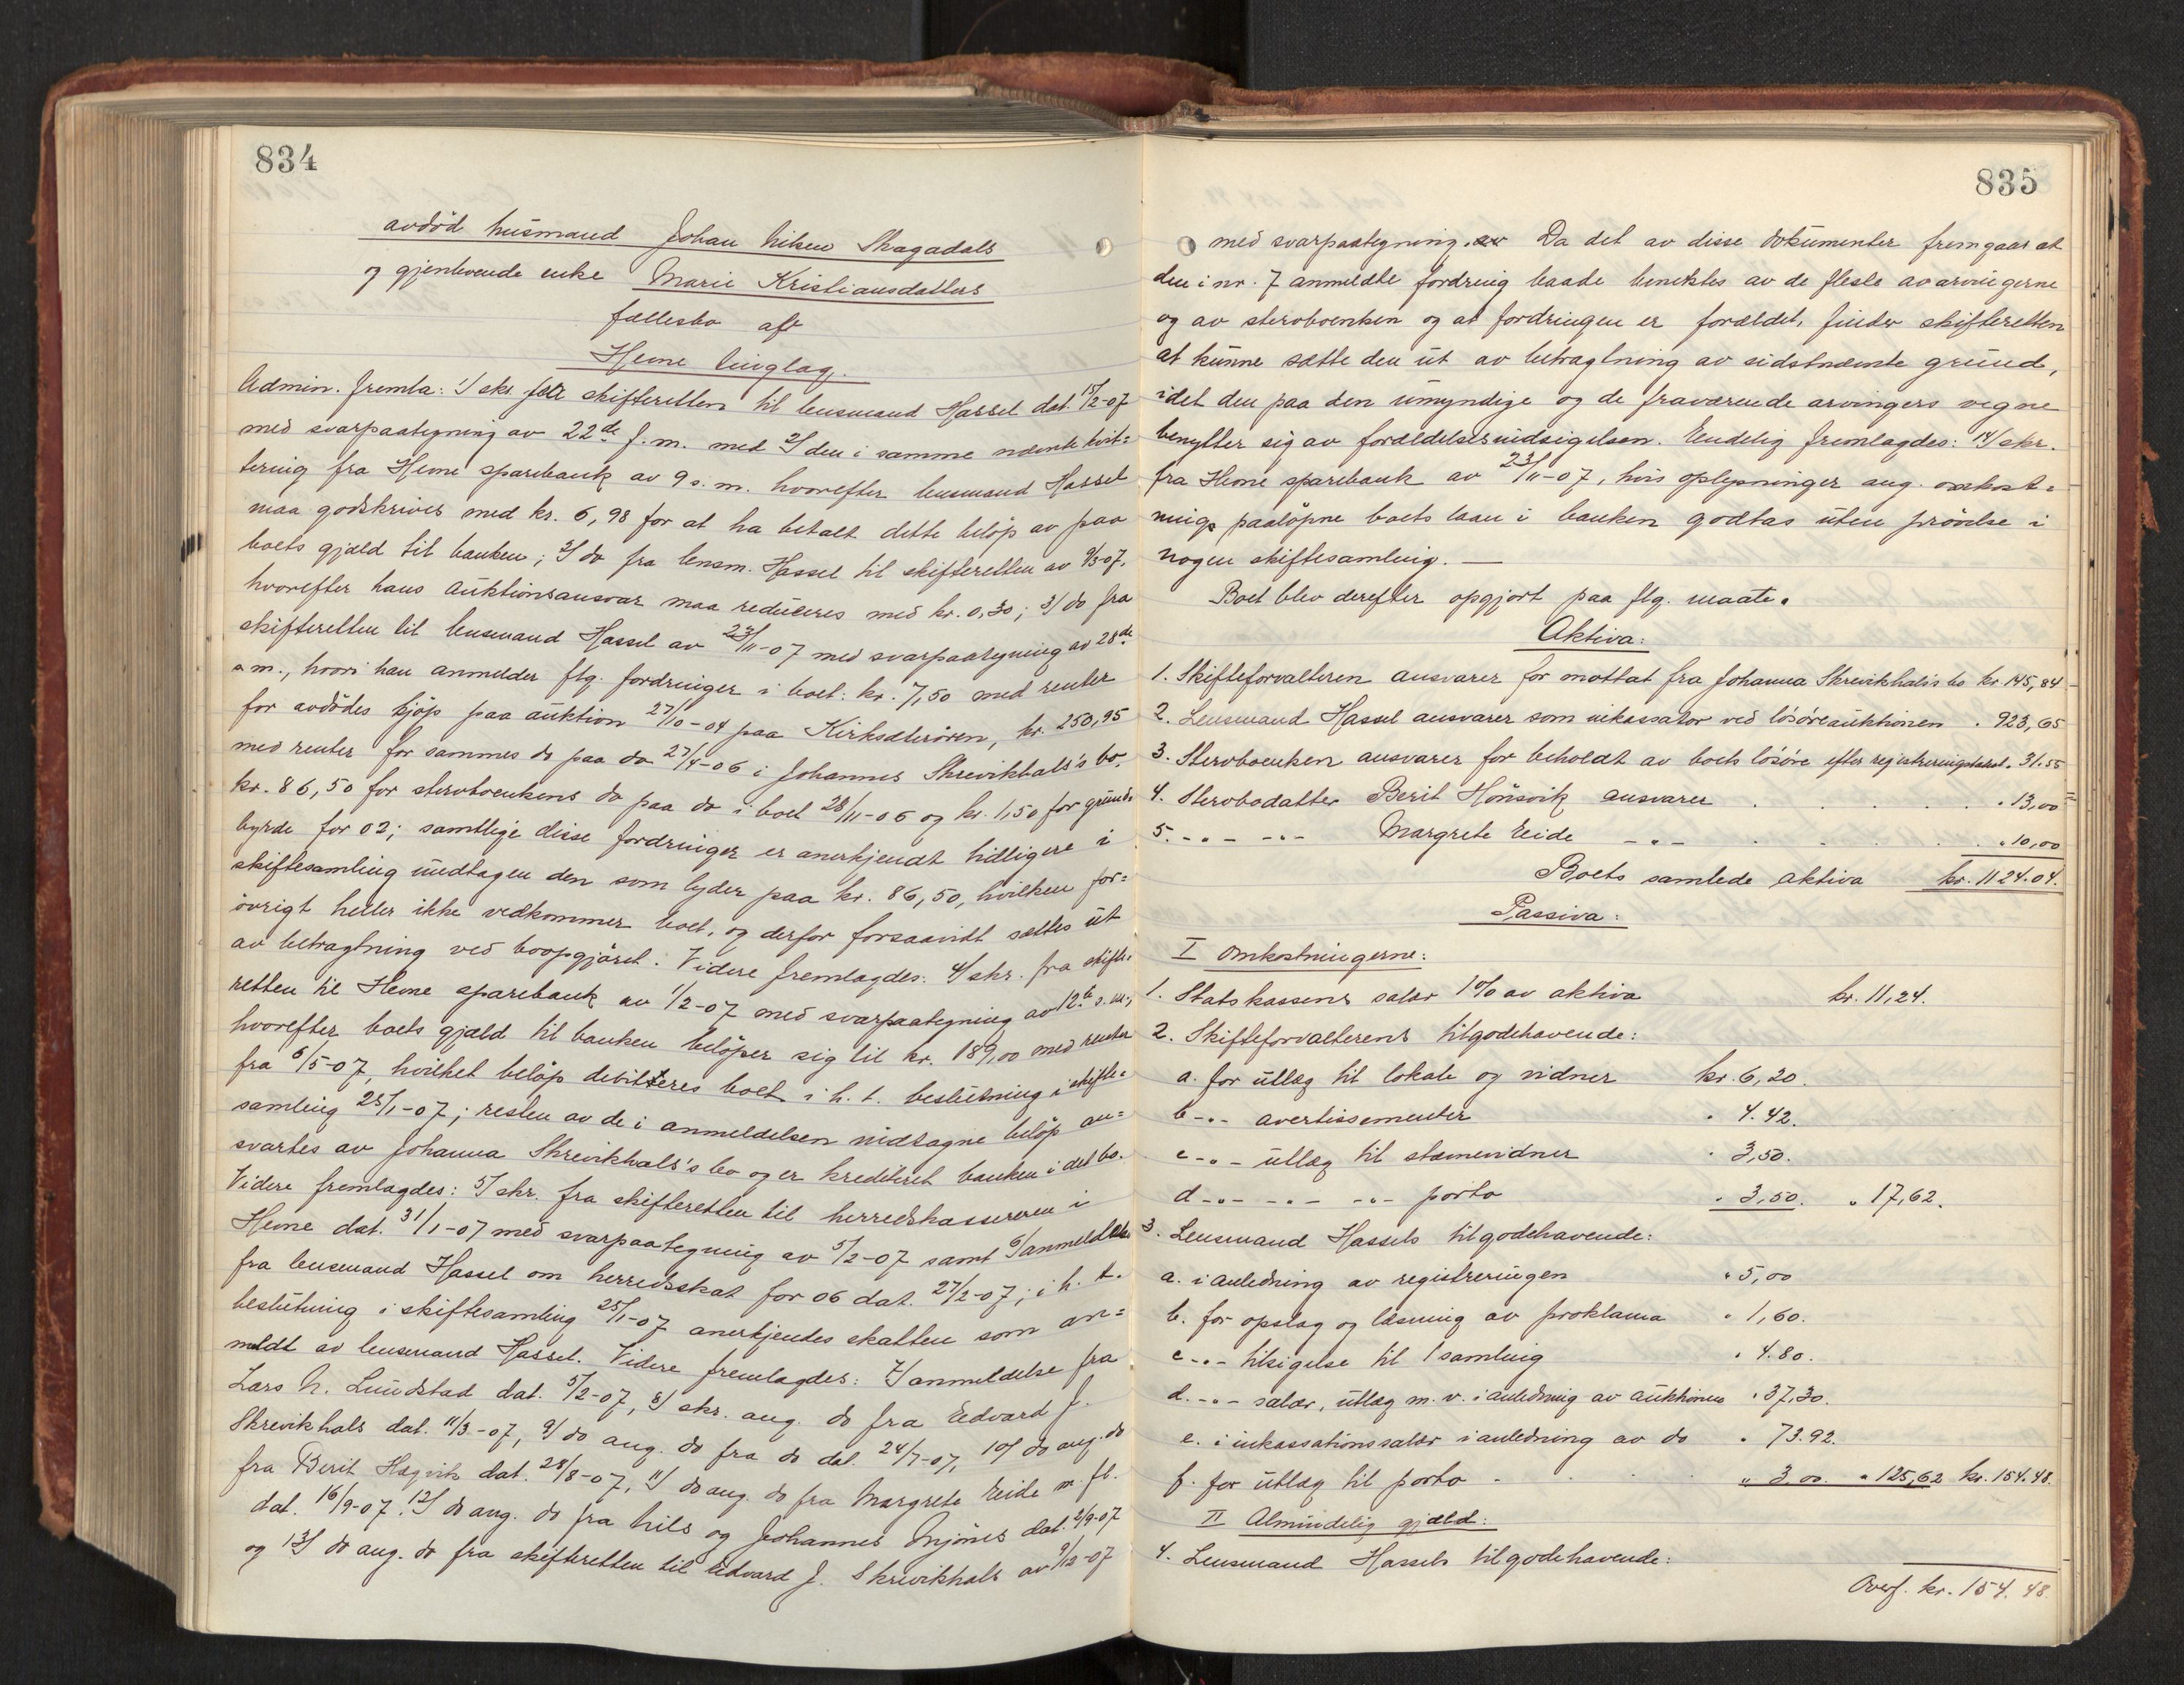 834
avdöd husmand Johan Nilsen Skagadals
og gjenlevende enke Marie Kristiansdatters
fællesbo aft
Hevne tinglag.
Admin. fremla: 1/ skr. fra skifteretten til lensmand Hassel dat. 15/2-07
med svarpaategning av 22de f.m. med 2/ den i samme nævnte kvit=
tering fra Hevne sparebank av 9 s.m. hvorefter lensmand Hassel
maa godskrives med kr. 6,98 for at ha betalt dette belöp av paa
boets gjæld til banken; 3/ do fra lensm. Hassel til skifteretten av 9/3-07.
hvorefter hans auktionsansvar maa reduceres med kr. 0,30; 3/ do fra
skifteretten til lensmand Hassel av 23/11-07 med svarpaategning av 28de
s.m., hvori han anmelder flg. fordringer i boet: kr. 7,50 med renter
for avdödes kjöp paa auktion 27/10-04 paa Kirksæterören, kr. 250,95
med renter for sammes do paa do 27/4-06 i Johannes Skrevikhals's bo,
kr. 86,50 for stervboenkens do paa do i boet 28/11-06 og kr. 1,50 for grund=
byrde for 02; samtlige disse fordringer er anerkjendt tidligere i
skiftesamling undtagen den som lyder paa kr. 86,50, hvilken for=
övrigt heller ikke vedkommer boet, og derfor forsaavidt sættes ut
av betragtning ved boopgjöret. Videre fremlagdes: 4/ skr. fra skifte=
retten til Hevne sparebank av 1/2-07 med svarpaategning av 12te s.m.,
hvorefter boets gjæld til banken belöper sig til kr. 189,00 med renter
fra 6/5-07, hvilket belöp debiteres boet i h. t. beslutning i skifte=
samling 25/1-07; resten av de i anmeldelsen indtagne belöp an=
svartes av Johanna Skrevikhals's bo og er krediteret banken i det bo.
Videre fremlagdes: 5/ skr. fra skifteretten til herredskassereren i
Hevne dat. 31/1-07 med svarpaategning av 5/2-07 samt 6/ anmeldelse
fra lensmand Hassel om herredsskat for 06 dat. 27/2-07; i h. t.
beslutning i skiftesamling 25/1-07 anerkjendes skatten som an=
meldt av lensmand Hassel. Videre fremlagdes: 7/ anmeldelse fra
Lars N. Lundstad dat. 5/2-07, 8/ skr. ang. do fra Edvard J.
Skrevikhals dat. 11/3-07, 9/ do ang. do fra do dat. 24/7-07, 10/ do ang. do
fra Berit Hagvik dat. 28/8-07, 11/ do ang. do fra Margrete Eide m. fl.
dat. 16/9-07. 12/ do ang. do fra Nils og Johannes Mjönes dat. 2/9-07
og 13/ do ang. do fra skifteretten til Edvard J. Skrevikhals av 9/12-07
835
med svarpaategning. Da det av disse dokumenter fremgaar at
den i nr. 7 anmeldte fordring baade benektes av de fleste av arvingerne
og av stervboenken og at fordringen er forældet, finder skifteretten
at kunne sætte den ut av betragtning av sidstnævnte grund,
idet den paa den umyndige og de fraværende arvingers vegne
benytter sig av forældelsesindsigelsen. Endelig fremlagdes: 14/ skr.
fra Hevne sparebank av 23/11-07, hvis oplysninger ang. omkost=
nings paalöpne boets laan i banken godtas uten prövelse i
nogen skiftesamling. —
Boet blev derefter opgjort paa flg. maate.
Aktiva:
1. Skifteforvalteren ansvarer for mottat fra Johanna Skrevikhals's bo kr 145,84
2. Lensmand Hassel ansvarer som inkassator ved lösöreauktionen " 923,65
3. Stervboenken ansvarer for beholdt av boets lösöre efter registreringstakst " 31.55
4. Stervbodatter Berit Hönsvik ansvarer . . . . " 13,00
5. -"- -"- Margrete Eide -"- . . . . " 10,00
Boets samlede aktiva kr. 1124.04.
Passiva:
I Omkostningerne:
1. Statskassens salær 1% av aktiva kr. 11,24.
2. Skifteforvalterens tilgodehavende:
a. for utlæg til lokale og vidner kr. 6,20.
b -"- avertissementer " 4.42.
c -"- utlæg til stævnevidner " 3,50.
d -"- -"- -"- porto " 3,50. " 17,62.
3. Lensmand Hassels tilgodehavende:
a. i anledning av registreringen " 5,00
b. for opslag og læsning av proklama " 1,60.
c -"- tilsigelse til 1 samling " 4.80.
d. -"- salær, utlæg m. v. i anledning av auktionen " 37,30.
e. i inkassationssalær i anledning av do " 73.92.
f. for utlæg til porto . . . " 3,00. " 125,62 kr. 154.48.
II Almindelig gjæld:
4. Lensmand Hassels tilgodehavende:
Overf. kr. 154,48.